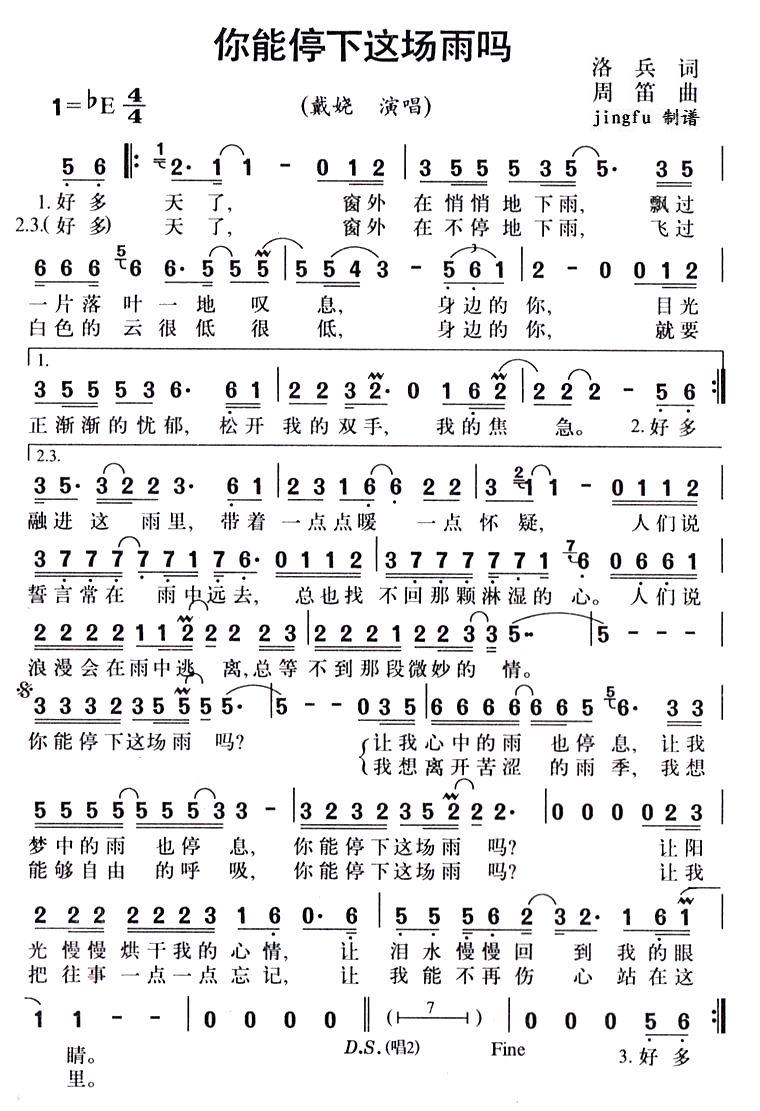 你能停下这场雨吗
洛兵 词
1=♭E 4/4 (戴娆 演唱) 周笛 曲
jingfu 制谱
5 6 𝄆 1 2· 1 1 - 0 0 1 2 | 3 5 5 5 3 5 5· 3 5 |
1.好多 天了, 窗外 在悄悄地下雨, 飘过
2.3.(好多) 天了, 窗外 在不停地下雨, 飞过
6 6 6 5 6 6· 5 5 5 | 5 5 4 3 - 5 6 1 | 2 - 0 0 0 1 2 |
一片落叶一地叹息, 身边的你, 目光
白色的云很低很低, 身边的你, 就要
1.
3 5 5 5 3 6· 6 1 | 2 2 3 2· 0 1 6 2 | 2 2 2 - 5 6 𝄇
正渐渐的忧郁, 松开我的双手, 我的焦急。 2.好多
2.3.
3 5· 3 2 2 3· 6 1 | 2 3 1 6 6 2 2 | 3 2 1 1 - 0 1 1 2 |
融进这雨里, 带着一点点暖一点怀疑, 人们说
3 7 7 7 7 7 7 1 7 6· 0 1 1 2 | 3 7 7 7 7 7 7 1 7 6 0 6 6 1 |
誓言常在雨中远去, 总也找不回那颗淋湿的心。人们说
2 2 2 2 2 1 1 2 2 2 2 3 | 2 1 2 1 2 1 2 2 3 3 5·· | 5 - - - |
浪漫会在雨中逃离,总等不到那段微妙的情。
3 3 3 2 3 5 5 5 5· | 5 - - 0 3 5 | 6 6 6 6 6 6 6 5 5 6· 3 3 |
你能停下这场雨吗? 让我心中的雨也停息, 让我
我想离开苦涩的雨季, 我想
5 5 5 5 5 5 5 3 3 3 - | 3 2 3 2 3 5 2 2 2· | 0 0 0 0 2 3 |
梦中的雨也停息, 你能停下这场雨吗? 让阳
能够自由的呼吸, 你能停下这场雨吗? 让我
2 2 2 2 2 2 3 1 6 0· 6 | 5 5 5 6 2 3 2· 1 6 1 |
光慢慢烘干我的心情, 让泪水慢慢回到我的眼
把往事一点一点忘记, 让我能不再伤心站在这
1 1 - - | 0 0 0 0 ‖ (7) | 0 0 0 5 6 𝄇
D.S.(唱2) Fine
睛。 3.好多
里。